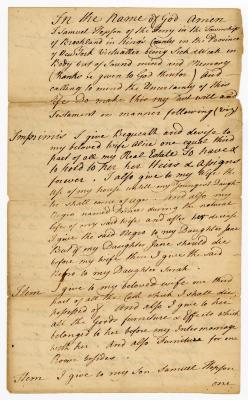 In the Name of God Amen
I Samuel Hopson of the Ferry in the Township
of Breckland in Kings County in the Province
of New York Victualler being Sick & Weak in
Body but of Sound mind and Memory
(thanks is given to God therefor) And
calling to mind the Uncertainty of this
life do make this my last will and
Testament in manner following (viz)
Imprimis I give Bequeath and devise to
my beloved wife Alice one equal third
part of all my Real Estate To have &
to hold to her her Heirs & Assigns
forever. I also give to my Wife the
Use of my house untill my Youngest Daugh
ter shall come of age. And also my
Negro named Prince during the natural
life of my said Wife and after her decease
I give the said Negro to my Daughter Jane
But if my Daughter Jane should die
before my wife then I give the said
Negro to my Daughter Sarah.
Item I give to my beloved wife one third
part of all the Cash which I shall die
possessed of. And also I give to her
all the Goods furniture & Effects which
belonged to her before my Intermarriage
with her. And also Furniture for one
Room besides.
Item I give to my Son Samuel Hopson
one